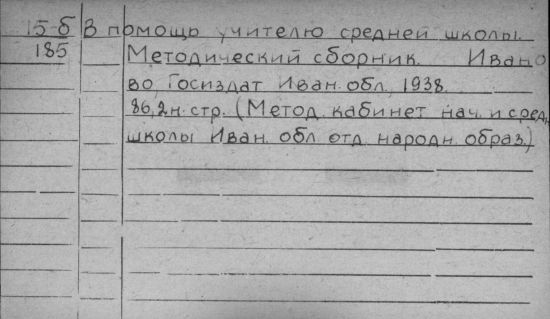 15-б В помощь учителю средней школы.
185 Методический сборник. Ивано
во, Госиздат Иван. обл., 1938.
86,2н. стр. (Метод. кабинет нач. и сред.
школы Иван. обл. отд. народн. образ.)